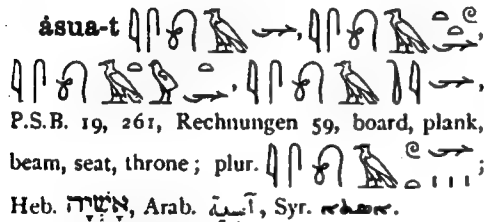 ȧsua-t 𓇋𓋴𓍯𓄿𓆱, 𓇋𓋴𓍯𓄿
𓇋𓋴𓍯𓄿, 𓇋𓋴𓍯𓄿𓆱,
P.S.B. 19, 261, Rechnungen 59, board, plank,
beam, seat, throne; plur. 𓇋𓋴𓍯𓄿;
Heb. אָשְׁיָה, Arab. آسية, Syr.